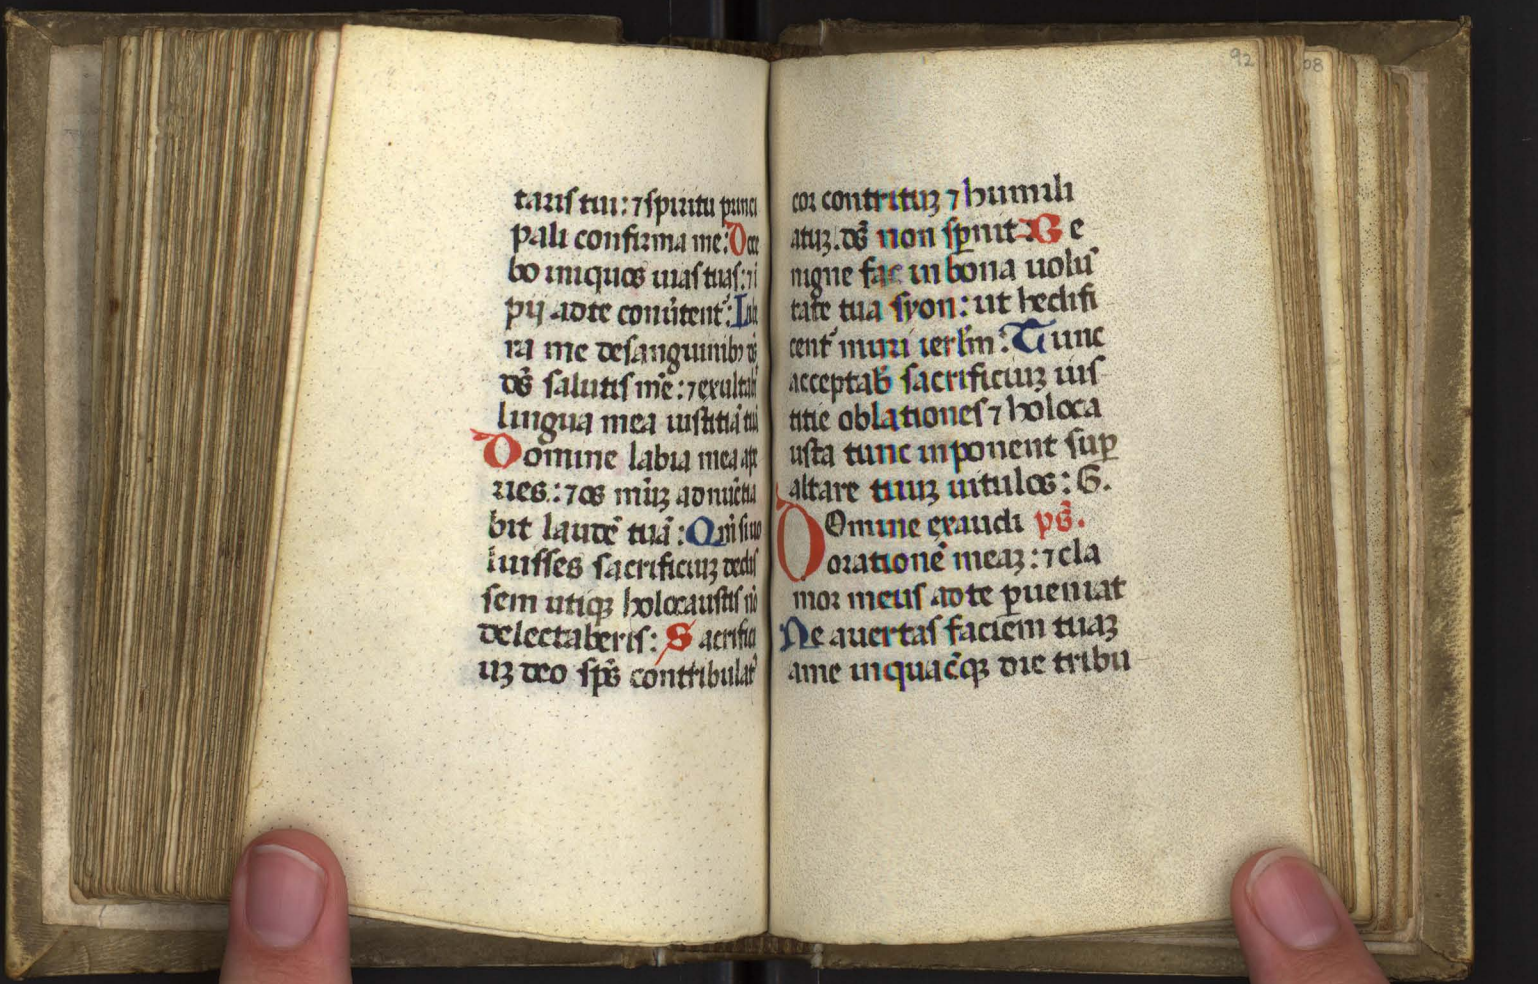 taris tui: ⁊ spiritu princi
pali confirma me: Doce
bo iniquos uias tuas: ⁊ i
pij ad te conũtent᷑: Libe
ra me de sanguinibꝫ ds̃
ds̃ salutis mẽ: ⁊ exultabit
lingua mea iustitiã tuã
Domine labia mea ape
ries: ⁊ os mũꝫ adnũtia
bit laudẽ tuã: Qm̃ si uo
luisses sacrificiuꝫ dedis
sem utiqꝫ holocaustis nõ
delectaberis: Sacrifici
uꝫ deo sps̃ contribulat᷑
92
08
cor contrituꝫ ⁊ humili
atuꝫ. ds̃ non sꝑnit Be
nigne fac in bona uolũ
tate tua syon: ut hedifi
cent᷑ muri ierlm̃: Tunc
acceptab̃ sacrificiuꝫ ius
titie oblationes ⁊ holoca
usta tunc inponent suꝑ
altare tuuꝫ uitulos: G.
Domine exaudi ps̃.
orationẽ meaꝫ: ⁊ cla
mor meus ad te ꝑueniat
Ne auertas faciem tuaꝫ
ame inquacũqꝫ die tribu